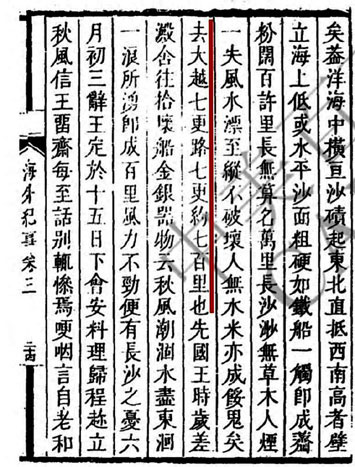 矣葢洋海中橫亘沙磧起東北直抵西南高者壁
立海上低或水平沙面粗硬如鐵船一觸即成齏
粉闊百許里長無算名萬里長沙渺無草木人煙
一失風水漂至縱不破壞人無水米亦成餒鬼矣
去大越七更路七更約七百里也先國王時歲差
澱舍往拾壞船金銀器物云秋風潮涸水盡東洄
一浪所湧即成百里風力不勁便有長沙之憂六
月初三辭王定於十五日下會安料理歸程趂立
秋風信王畱齋每至話別輙慘焉哽咽言自老和
海外紀事卷三